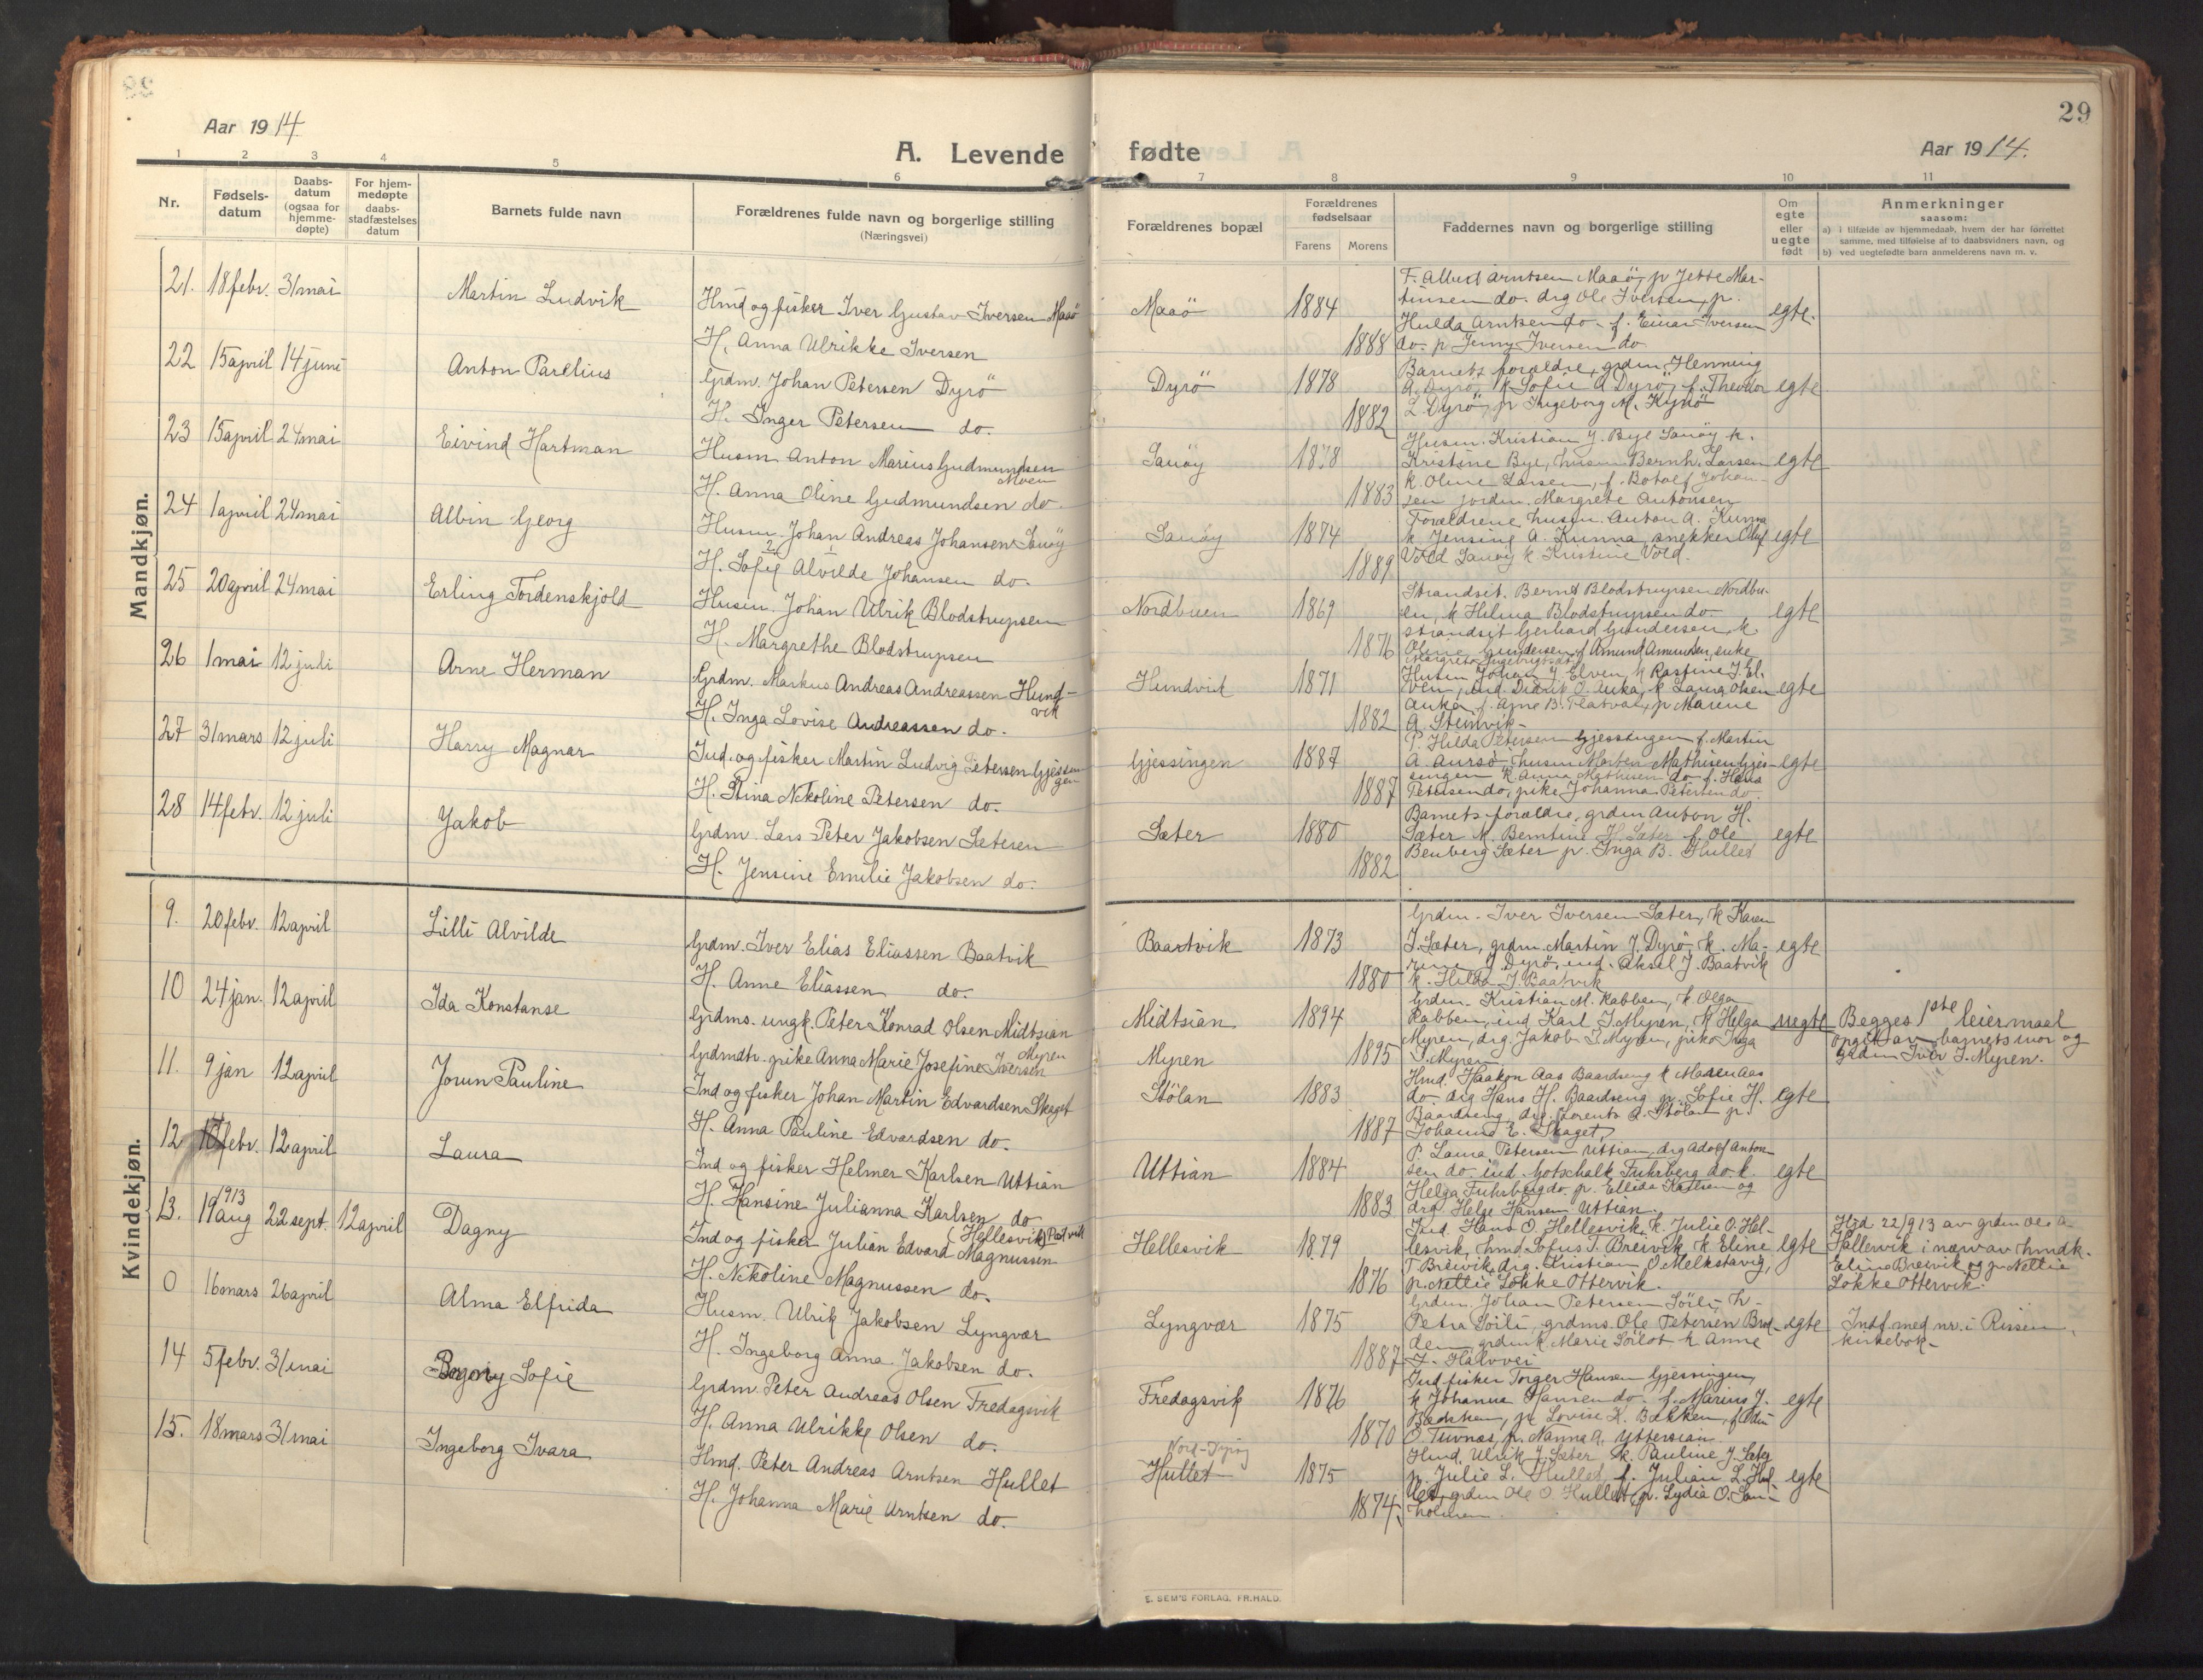 Aar 1914
A. Levende
1 2 3 4 5 6
Nr.
Fødsels-
datum
Daabs-
datum
(ogsaa for
hjemme-
døpte)
For hjem-
medøpte
daabs-
stadfæstelses
datum
Barnets fulde navn
Forældrenes fulde navn og borgerlige stilling
(Næringsvei)
Mandkjøn.
21. 18 febr. 31 mai Martin Ludvik Hmd og fisker Iver Gustav Iversen Maaö
H. Anna Ulrikke Iversen
22 15 april 14 juni Anton Parelius Grdm. Johan Petersen Dyrö
H. Inger Petersen do.
23 15 april 24 mai Eivind Hartman Husm Anton Marius Gudmundsen
Moen
H. Anna Oline Gudmundsen do.
24 1 april 24 mai Albin Georg Husm. Johan Andreas Johansen Sauöy
2 1
H. Sofie Alvilde Johansen do.
25 20 april 24 mai Erling Tordenskjold Husm. Johan Ulrik Blodstrupsen
H. Margrethe Blodstrupsen
26 1 mai 12 juli Arne Herman Grdm. Markus Andreas Andreassen Hund-
vik
H. Inga Lovise Andreassen do.
27 31 mars 12 juli Harry Magnar Ind. og fisker Martin Ludvig Petersen Gjessin-
gen
H. Stina Nikoline Petersen do.
28 14 febr. 12 juli Jakob Grdm. Lars Peter Jakobsen Sæteren
H. Jensine Emilie Jakobsen do.
Kvindekjøn.
9. 20 febr. 12 april Lilli Alvilde Grdm. Iver Elias Eliassen Baatvik
H. Anne Eliassen do.
10 24 jan. 12 april Ida Konstanse Grdms. ungk. Peter Konrad Olsen Midtsian
Myren
Grdmdtr. pike Anna Marie Josefine Iversen
11. 9 jan 12 april Jorun Pauline Ind og fisker Johan Martin Edvardsen Skaget
H. Anna Pauline Edvardsen do.
12 febr. 12 april Laura Ind og fisker Helmer Karlsen Uttian
H. Hansine Julianna Karlsen do
1913
13. 19 aug 22 sept. 12 april Dagny Ind og fisker Julian Edvard Magnussen
(Hellesvik)
H. Nikoline Magnussen do.
0 16 mars 26 april Alma Elfrida Husm. Ulrik Jakobsen Lyngvær
H. Ingeborg Anna Jakobsen do.
14 5 febr. 31 mai Sofie Grdm. Peter Andreas Olsen Fredagsvik
H. Anna Ulrikke Olsen do.
15. 18 mars 31 mai Ingeborg Ivara Hmd. Peter Andreas Arntsen Hullet
H. Johanna Marie Arntsen do.
29
fødte
Aar 1914.
7 8 9 10 11
Forældrenes bopæl
Forældrenes
fødselsaar
Farens Morens
Faddernes navn og borgerlige stilling
Om
egte
eller
uegte
født
Anmerkninger
saasom:
a) i tilfælde av hjemmedaab, hvem der har forrettet
samme, med tilføielse af to daabsvidners navn, og
b) ved uegtefødte barn anmelderens navn m. v.
F. Albert Arntsen Maaö, p Jette Mar-
tinsen do. drg Ole Iversen, p.
Maaö 1884 egte.
Hulda Arntsen do - f. Einar Iversen
1888 do. p Jenny Iversen do
Barnets forældre, grdm. Henning
Dyrö 1878 A. Dyrö, k Sofie A Dyrö, f. Theodor egte
1882 L. Dyrö, p Ingeborg M.
Husm. Kristian J. Bye Sauöy k.
Sauöy 1878 Kristine Bye, husm Bernh. Larsen egte
1883 k. Oline Larsen, f. Botolf Johan-
sen jordm. Margrete Antonsen
Forældrene husm. Anton A. Kunna
Sauöy 1874 k Jensine A. Kunna, snekker Oluf egte
1889 Vold Sauöy k Kristine Vold.
Strandsit. Bernt Blodstrupsen Nordbu-
Nordbuen 1869 en, k Hilma Blodstrupsen do - egte
strandsit Gerhard Gundersen k
1876 Oline Gundersen, f Amund Amundsen, enke
Margrete Ingebrigtsdtr
Husm Johan J. Elven, k Rasfine J. El-
Hundvik 1871 ven, ind. Didrik O. Anka, k Laura Olsen egte
Anka, f. Arne B. Flatval, p Marine
1882 A. Steinvik -
P. Hilda Petersen Gjessingen f. Martin
Gjessingen 1887 A Aursö, husm Morten Mathisen Gjes- egte
singen k. Anna Mathisen do f. Hans
1887 Petersen do, pike Johanna Petersen do.
Barnets forældre, grdm Anton H.
Sæter 1880 Sæter k. Berntine H. Sæter f. Ole egte
1882 Benberg Sæter p. Inga B. Hullet
Grdm. Iver Iversen Sæter, k Karen
Baatvik 1873 I. Sæter, grdm. Martin J. Dyrö k. Ma- egte
rine J Dyrö, ind. Aksel J. Baatvik
1880 k. Hilda J. Baatvik
Grdm. Kristian M. Rabben, k. Olga
Midtsian 1894 Rabben, ind. Karl I. Myren, k Helga uegte Begges 1ste leiermaal
Myren 1895 Myren, drg. Jakob I. Myren, pike Inga opgit av barnets mor og
I. Myren grdm Iver I. Myren.
Hmd. Haakon Aas Baardseng k Maren Aas
Stölan 1883 do. drg Hans H. Baardseng p. Sofie H. egte
Baardseng drg. Lorents A. Stölan p.
1887 Johanna E. Skaget.
P. Laura Petersen Uttian, drg Adolf Anton-
Uttian 1884 sen do. ind. Gotschalk Fuhrberg do. k. egte
Helga Fuhrberg do. p. Ellida Karlsen og
1883 drg. Helge Hansen Uttian
Ind. Hans O. Hellesvik, k. Julie O. Hel-
Hellesvik 1879 lesvik, hmd. Sofus T. Breivik, k Eline egte
T Breivik, drg. Kristian O Melkstavig,
1876 p. Nettie Løkke Ottervik.
Hjd 22/913 av grdm Ole A
Hallervik i nærv av hmdk.
Eline Breivik og p. Nettie
Løkke Ottervik.
Grdm. Johan Petersen Sörli, k -
Lyngvær 1875 Petra Sörli, grdms. Ole Petersen Brod- egte Indf. med nr. i Rissen
den, grdmk Marie Sörlot k Anne kirkebok -
1887 J. Halvvei
Ind fisker Torger Hansen Gjessingen,
Fredagsvik 1876 k Johanna Hansen do. f. Marius J. egte
p. Lovise K. Bakken, f Odin
1870 O. Tuvnæs, p. Nanna A. Yttersian
Nord-Dyröy
Hmd. Ulrik J. Sæter k. Pauline J. Sæter
Hullet 1875 p. Julie L. Hullet, f. Julian L. Hul- egte
let, grdm Ole O. Hullet, p. Lydia O. San-
1874. holmen.
E. SEM'S FORLAG, FR.HALD.